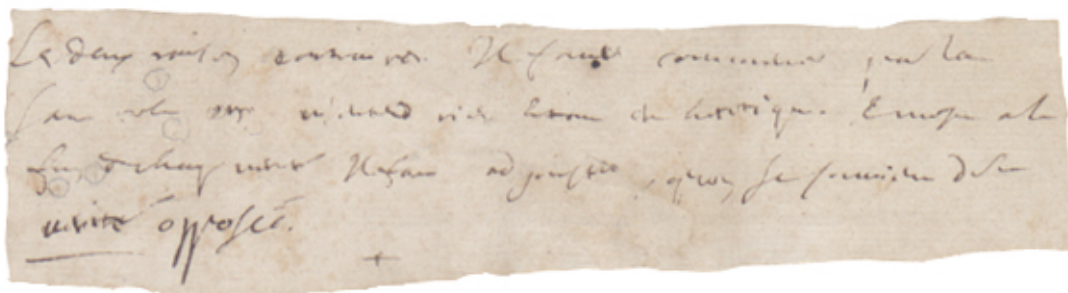 Les deux raisons contraires. Il faut commencer par la
sans cela on n'entend rien et tout est heretique. Et mesme a la
fin de chaque verité Il faut adjouster, qu'on se souvient de la
verité opposée.